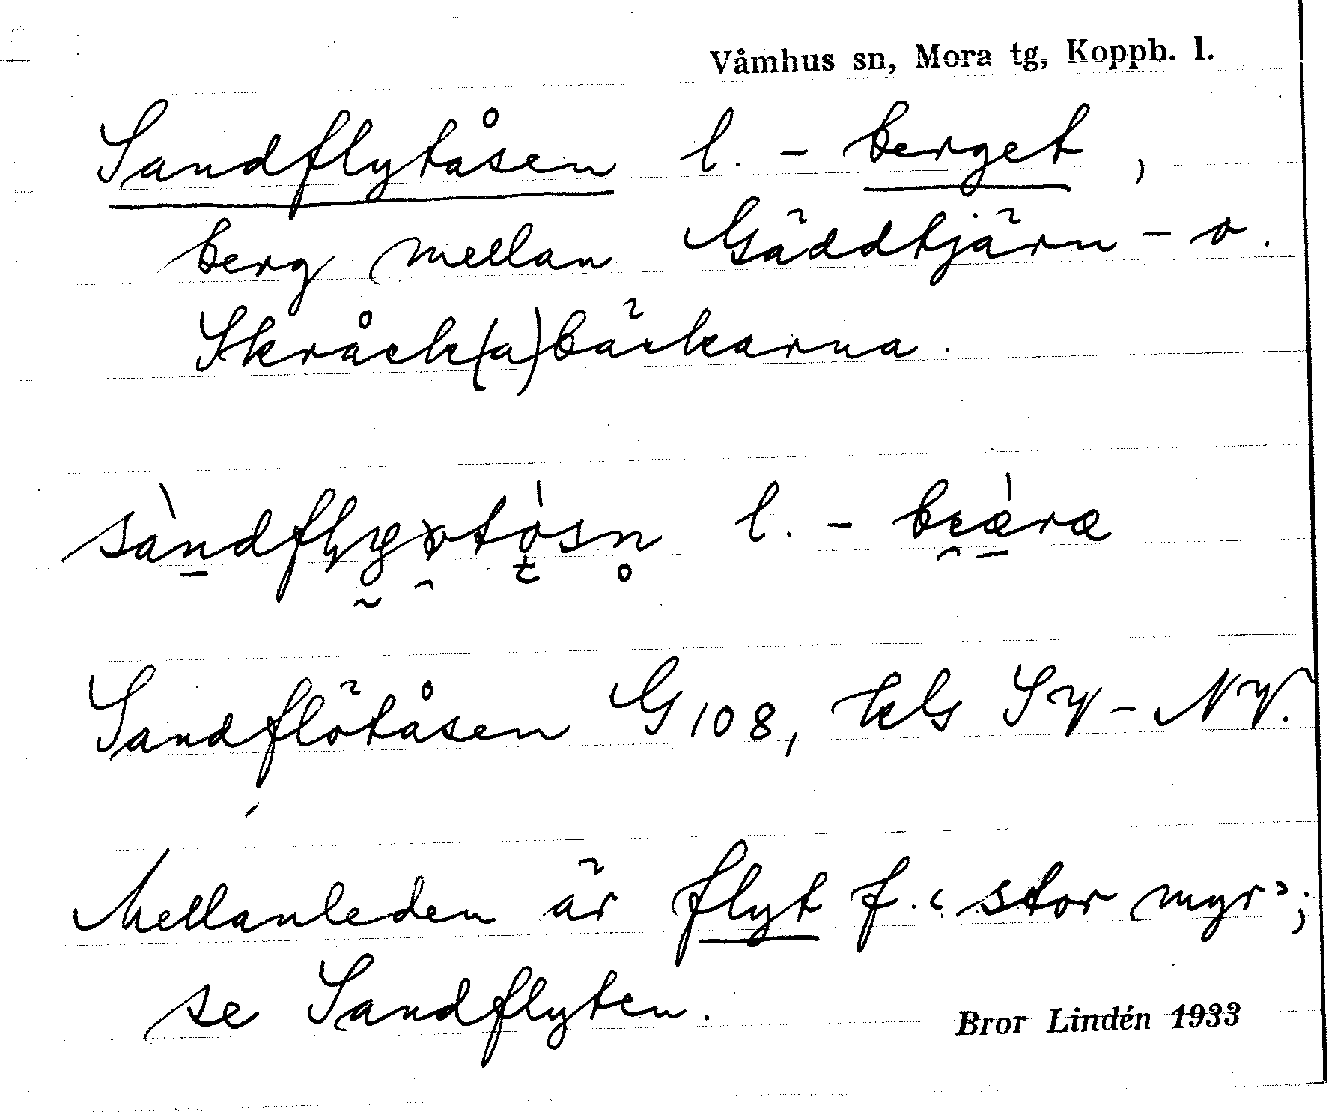 Våmhus sn, Mora tg, Koppb. l.
Sandflytåsen l. - berget,
berg mellan Gäddtjärn- o.
Skråck(a)bäckarna.
l. -
Sandflötåsen G 108, kls SV-NV.
Mellanleden är flyt f. ‹stor myr›;
se Sandflyten.
Bror Lindén 1933